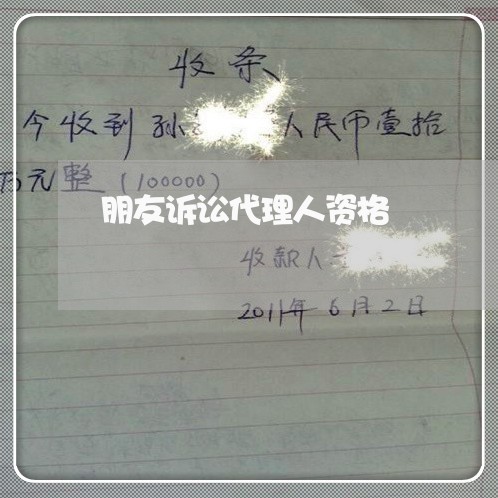 收条
今收到孙 人民币壹拾
万元整（100000）
朋友诉讼代理人资格
收款人
2011年6月2日